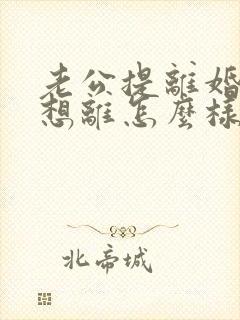 老公提離婚
想離怎麼樣
北帝城